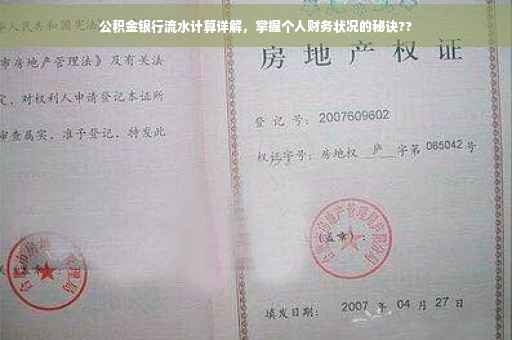 公积金银行流水计算详解，掌握个人财务状况的秘诀??
人民共和国宪法
市房地产管理法》及有关法
定，对权利人申请登记本证所
审查属实，准予登记，特发此
房地产权证
登记号：2007609602
权证字号：房地权 庐 字第 085042 号
（盖章）：
填发日期： 2007 年 04 月 27 日